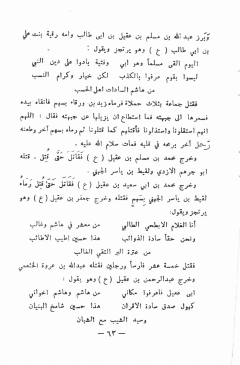 وبرز عبد الله بن مسلم بن عقيل بن ابي طالب وامه رقية بنت علي
بن ابي طالب ( ع ) وهو يرتجز ويقول :
اليوم القى مسلماً وهو ابي وفتية بادوا على دين النبي
ليسوا بقوم عرفوا بالكذب لكن خيار وكرام النسب
من هاشم السادات اهل الحسب
فقتل جماعة بثلاث حملات فرماه زيد بن ورقاء بسهم فاتقاه بيده
فسمرها الى جبهته فما استطاع ان يزيلها عن جبهته فقال : اللهم
انهم استقلونا واستذلونا فأقتلهم كما قتلونا ثم رماه بسهم آخر وطعنه
آخر برمحه في قلبه فمات سلام الله عليه .
وخرج محمد بن مسلم بن عقيل ( ع ) فقاتل حتى قتل ، قتله
ابو جرهم الازدي ولقيط بن ياسر الجهني .
وخرج محمد بن ابي سعيد بن عقيل ( ع ) فقاتل حتى قتل رماه
لقيط بن ياسر الجهني بسهم فقتله وخرج جعفر بن عقيل ( ع ) وهو
يرتجز ويقول:
أنا الغلام الابطحي الطالبي من معشر في هاشم وغالب
ونحن حقاً سادة الذوائب هذا حسين اطيب الاطائب
من عترة البر التقي الغالب
فقتل خمسة عشر فارساً ورجلين فقتله عبد الله بن عروة الخثعمي
وخرج عبد الرحمن بن عقيل ( ع ) وهو يقول :
ابي عقيل فاعرفوا مكاني من هاشم وهاشم اخواني
كهول صدق سادة الاقران هذا حسين شامخ البنيان
وسيد الشيب مع الشبان
- ٦٣ -